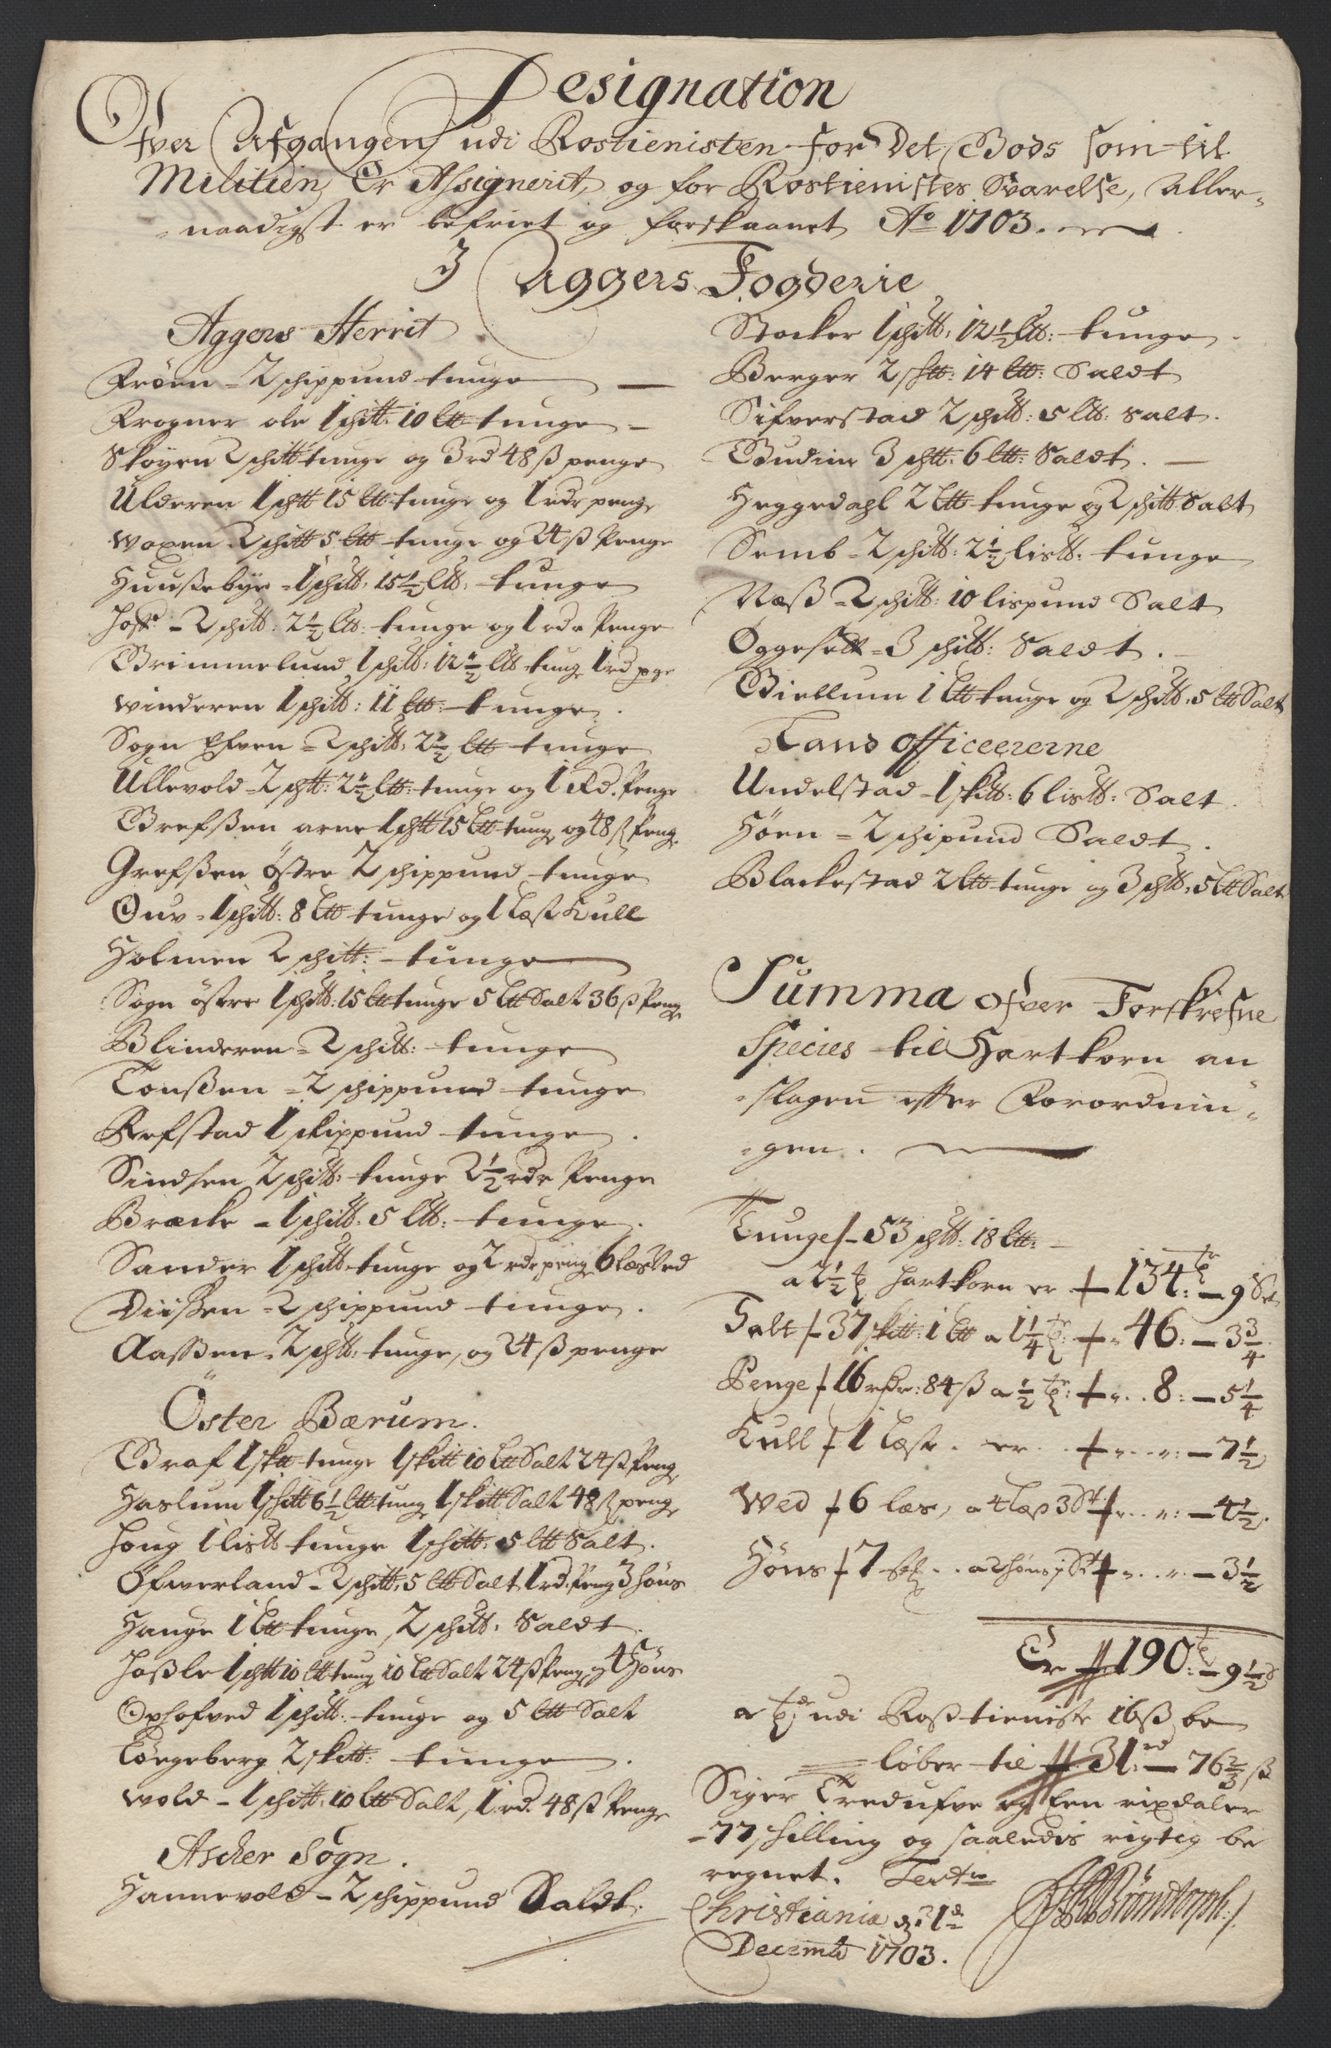 Designation
Ofver Afgangen udi Rostienisten for Det Gods som til
Militien Er Assignerit, og for Rostienistes Svarelse, Aller-
naadigst er befriet og forskaanet Ao 1703.
J Aggers Fogderie
Aggers Herrit
Frøen - 2 schippund tunge
Frogner ole 1 schtt. 10 ltt tunge
Skøyen 2 schtt tunge og 3 rd 48 ß penge
Ulderen 1 schtt 15 ltt tunge og 1 rdr penge
Woxen 2 schtt 5 ltt tunge og 24 ß Penge
Huusebye - 1 schtt. 15½ ltt. tunge
Hoff - 2 schtt: 2½ ltt: tunge og 1 rdr Penge
Grimmelund 1 schtt: 12½ ltt tunge 1 rd pge
Winderen 1 schtt: 11 ltt: tunge
Sogn Efven - 2 schtt: 2½ ltt tunge
Ullevold - 2 schtt: 2½ ltt: tunge og 1 Rd. Penge
Grefsen arne 1 schtt 15 ltt tung og 48 ß Peng
Grefsen østre 2 schippund tunge
Ouv - 1 schtt: 8 ltt tunge og 1 læst Kull
Holmen 2 schtt: tunge
Sogn østre 1 schtt: 15 ltt tunge 5 ltt Salt 36 ß Peng
Blinderen - 2 schtt: tunge
Tonsen - 2 schippund tunge
Refstad 1 skippund tunge
Sindsen 2 schtt: tunge 2½ rdr Penge
Bræcke - 1 schtt: 5 ltt: tunge
Sander 1 schtt tunge og 2 rdr peng 6 læs Ved
Diißen - 2 schippund tunge
Aassen - 2 schtt: tunge, og 24 ß penge
Öster Bærum.
Graf 1 sktt tunge 1 skitt 10 ltt Salt 24 ß Peng
Haslum 1 schtt 6½ ltt tung 1 skitt Salt 48 ß peng
Houg 1 listt tunge 1 schtt: 5 ltt Salt.
Ofwerland - 2 schtt: 5 ltt Salt 1 rd. Peng 3 Høns
Hauge 1 ltt tunge 2 schtt: Saldt
Hoßle 1 schtt 10 ltt tung 10 ltt Salt 24 ß Peng og 4 Høns
Ophofved 1 schtt: tunge og 5 ltt Salt
Tørgeberg 2 skitt: tunge
Wold - 1 schtt: 10 ltt Salt, 1 rd. 48 ß Penge
Ascher Sogn.
Hannevold - 2 schippund Saldt.
Stocker 1 schtt: 12½ ltt: tunge
Berger 2 sktt: 14 ltt: Saldt
Sifverstad 2 schtt: 5 ltt. Salt.
Gudim 3 schtt. 6 ltt: Saldt.
Heggedahl 2 ltt tunge og 2 schtt Salt
Semb - 2 schtt: 2½ listt: tunge
Næß - 2 schtt: 10 lispund Salt
Oggesett - 3 schtt: Saldt.
Giellum 1 ltt tunge og 2 schtt: 5 ltt Salt
Land officeererne
Undelstad - 1 skitt: 6 listt: Salt
Høen - 2 schipund Saldt
Blackestad 2 ltt tunge og 3 schtt: 5 ltt Salt
Summa ofver Forskrefne
Species til Hartkorn an
slagen effter Forordnin-
gen.
Tunge - 53 schtt: 18 ltt:
a 2½ Hartkorn er 134: - 9
Salt - 37 skitt: 1 ltt a 1¼ 46: - 3¾
Penge 16 rdr: 84 ß a ½ 8: - 5¼
Kull 1 læst er - 7½
Wed 6 læs, a 4 læs 3 - 4½
Høns 7 - 3½
Er 190: - 9½
a udi Roßtieniste 16 ß be
løber til 31 rd - 76⅔ ß
Siger Tredufve og Een rixdaler
77 skilling og saaledis rigtig be
regnet. Test
Christiania d: 31
Decemb 1703.